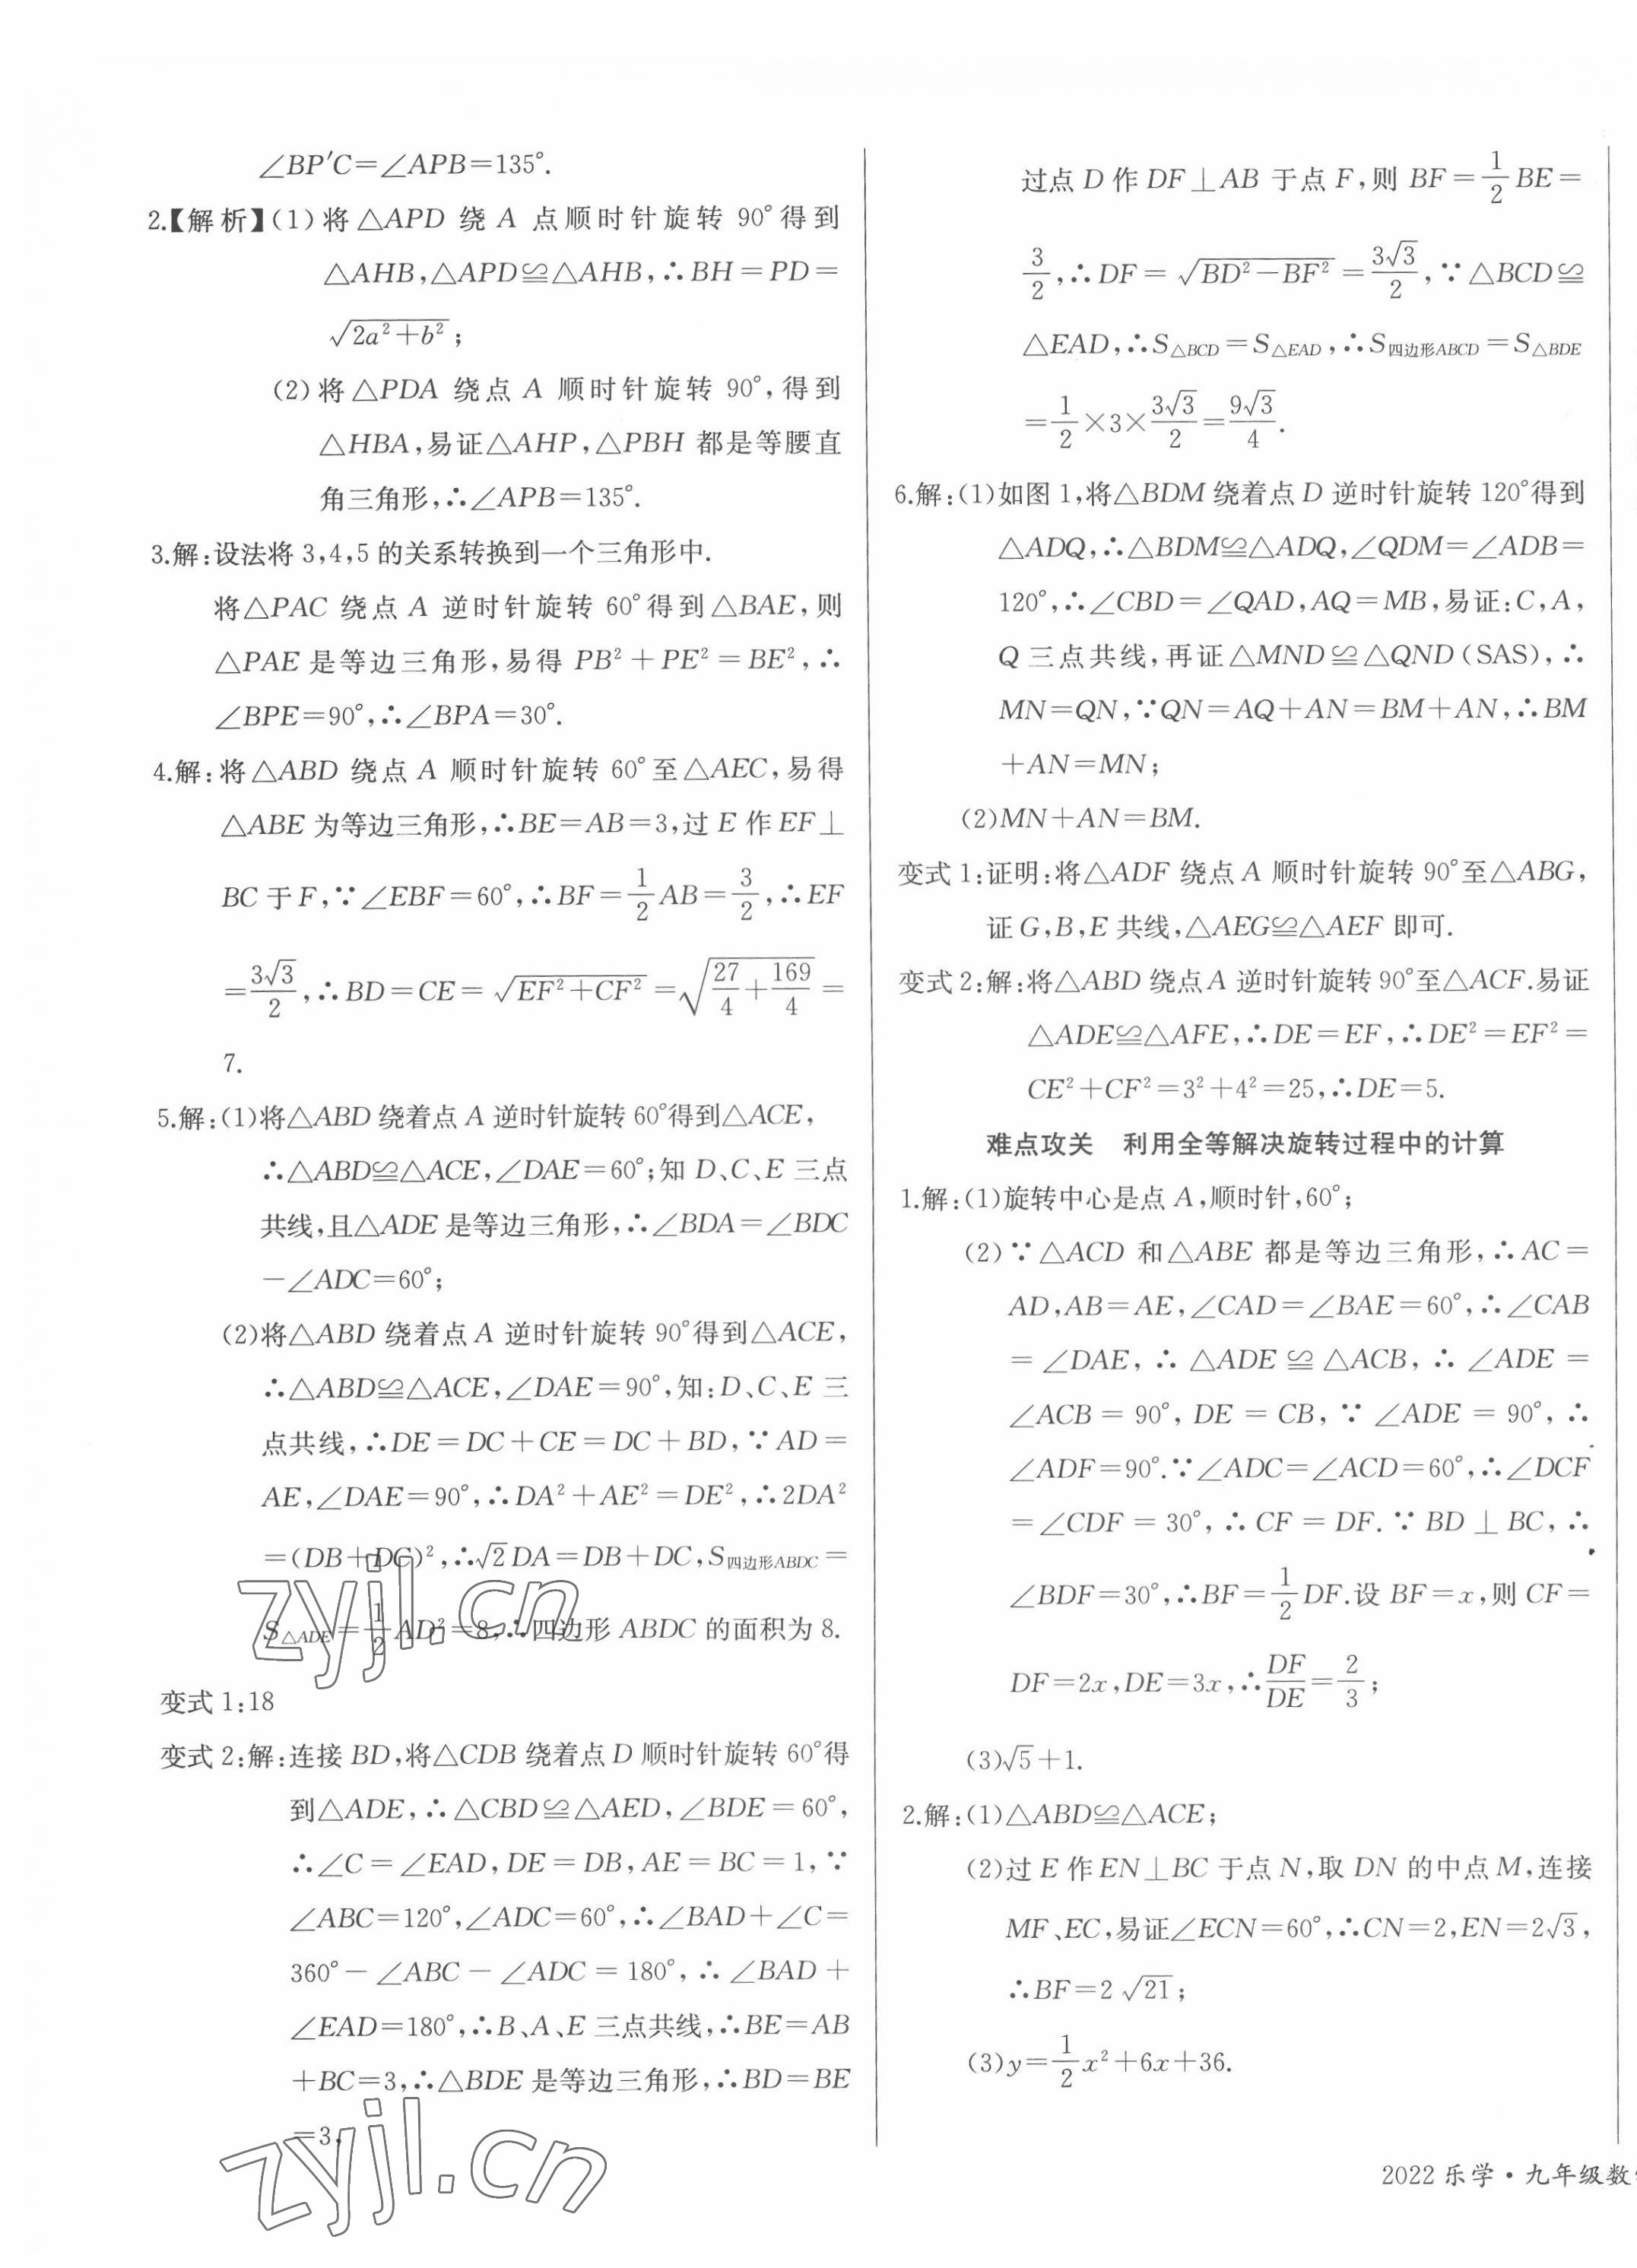 ∠BP′C=∠APB=135°.
2.【解析】(1)将△APD 绕 A 点顺时针旋转 90°得到
△AHB,△APD≌△AHB,∴BH=PD=
√(2a²+b²);
(2)将△PDA 绕点 A 顺时针旋转 90°,得到
△HBA,易证△AHP,△PBH 都是等腰直
角三角形,∴∠APB=135°.
3.解:设法将 3,4,5 的关系转换到一个三角形中.
将△PAC 绕点 A 逆时针旋转 60°得到△BAE,则
△PAE 是等边三角形,易得 PB²+PE²=BE²,∴
∠BPE=90°,∴∠BPA=30°.
4.解:将△ABD 绕点 A 顺时针旋转 60°至△AEC,易得
△ABE 为等边三角形,∴BE=AB=3,过 E 作 EF⊥
BC 于 F,∵∠EBF=60°,∴BF=1/2 AB=3/2,∴EF
=3√3/2,∴BD=CE=√(EF²+CF²)=√(27/4+169/4)=
7.
5.解:(1)将△ABD 绕着点 A 逆时针旋转 60°得到△ACE,
∴△ABD≌△ACE,∠DAE=60°;知 D、C、E 三点
共线,且△ADE 是等边三角形,∴∠BDA=∠BDC
-∠ADC=60°;
(2)将△ABD 绕着点 A 逆时针旋转 90°得到△ACE,
∴△ABD≌△ACE,∠DAE=90°,知:D、C、E 三
点共线,∴DE=DC+CE=DC+BD,∵AD=
AE,∠DAE=90°,∴DA²+AE²=DE²,∴2DA²
=(DB+DC)²,∴√2DA=DB+DC,S四边形ABDC=
S△ADE=1/2 AD²=8,∴四边形 ABDC 的面积为 8.
变式 1:18
变式 2:解:连接 BD,将△CDB 绕着点 D 顺时针旋转 60°得
到△ADE,∴△CBD≌△AED,∠BDE=60°,
∴∠C=∠EAD,DE=DB,AE=BC=1,∵
∠ABC=120°,∠ADC=60°,∴∠BAD+∠C=
360°-∠ABC-∠ADC=180°,∴∠BAD+
∠EAD=180°,∴B、A、E 三点共线,∴BE=AB
+BC=3,∴△BDE 是等边三角形,∴BD=BE
=3,
过点 D 作 DF⊥AB 于点 F,则 BF=1/2 BE=
3/2,∴DF=√(BD²-BF²)=3√3/2,∵△BCD≌
△EAD,∴S△BCD=S△EAD,∴S四边形ABCD=S△BDE
=1/2×3×3√3/2=9√3/4.
6.解:(1)如图 1,将△BDM 绕着点 D 逆时针旋转 120°得到
△ADQ,∴△BDM≌△ADQ,∠QDM=∠ADB=
120°,∴∠CBD=∠QAD,AQ=MB,易证:C,A,
Q 三点共线,再证△MND≌△QND(SAS),∴
MN=QN,∵QN=AQ+AN=BM+AN,∴BM
+AN=MN;
(2)MN+AN=BM.
变式 1:证明:将△ADF 绕点 A 顺时针旋转 90°至△ABG,
证 G,B,E 共线,△AEG≌△AEF 即可.
变式 2:解:将△ABD 绕点 A 逆时针旋转 90°至△ACF.易证
△ADE≌△AFE,∴DE=EF,∴DE²=EF²=
CE²+CF²=3²+4²=25,∴DE=5.
难点攻关 利用全等解决旋转过程中的计算
1.解:(1)旋转中心是点 A,顺时针,60°;
(2)∵△ACD 和△ABE 都是等边三角形,∴AC=
AD,AB=AE,∠CAD=∠BAE=60°,∴∠CAB
=∠DAE,∴△ADE≌△ACB,∴∠ADE=
∠ACB=90°,DE=CB,∵∠ADE=90°,∴
∠ADF=90°.∵∠ADC=∠ACD=60°,∴∠DCF
=∠CDF=30°,∴CF=DF.∵BD⊥BC,∴
∠BDF=30°,∴BF=1/2 DF.设 BF=x,则 CF=
DF=2x,DE=3x,∴DF/DE=2/3;
(3)√5+1.
2.解:(1)△ABD≌△ACE;
(2)过 E 作 EN⊥BC 于点 N,取 DN 的中点 M,连接
MF、EC,易证∠ECN=60°,∴CN=2,EN=2√3,
∴BF=2√21;
(3)y=1/2 x²+6x+36.
2022 乐学·九年级数
zyjl.cn
zyjl.cn